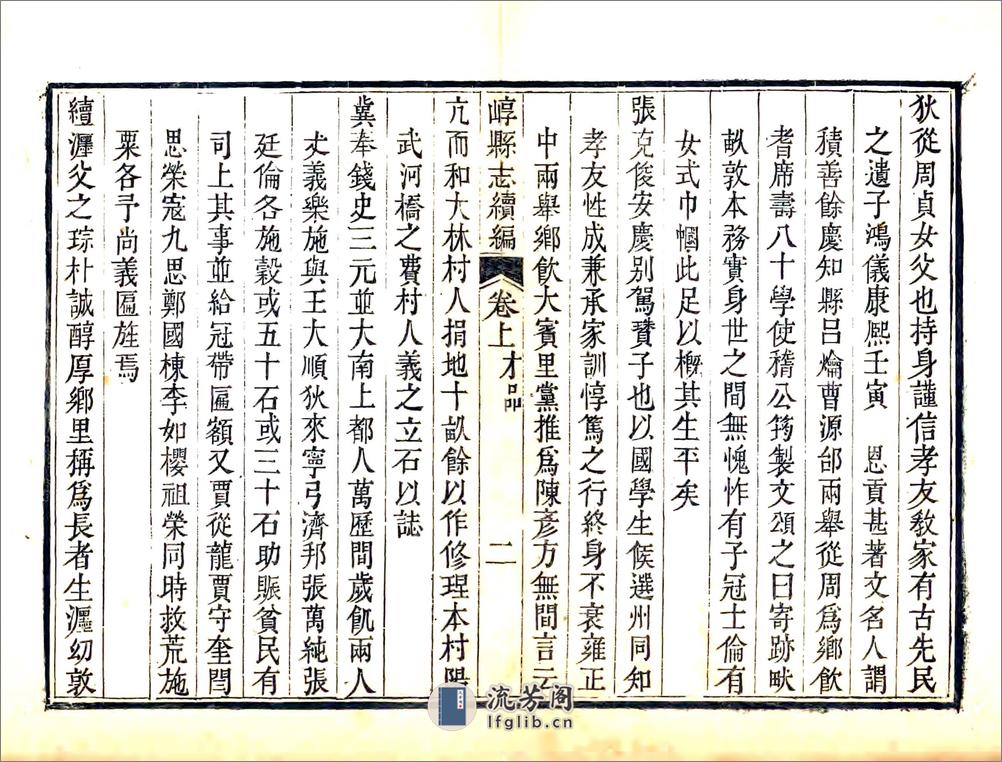 狄從周貞女父也持身謹信孝友敎家有古先民
之遺子鴻儀康熙壬寅　恩貢甚著文名人謂
積善餘慶知縣呂爚曹源邰兩舉從周爲鄉飮
耆席壽八十學使稽公筠製文頌之曰寄跡畎
畝敦本務實身世之間無愧怍有子冠士倫有
女式巾幗此足以槪其生平矣
張克俊安慶别駕賛子也以國學生候選州同知
孝友性成兼承家訓惇篤之行終身不衰雍正
中兩舉鄉飮大賓里黨推爲陳彥方無間言云
崞縣志續編　卷上才品　二
亢而和大林村人捐地十畝餘以作修理本村陽
武河橋之費村人義之立石以誌
冀奉錢史三元並大南上都人萬歷間歲飢兩人
丈義樂施與王大順狄來寧弓濟邦張萬純張
廷倫各施穀或五十石或三十石助賑貧民有
司上其事並給冠帶匾額又賈從龍賈守奎閆
思榮寇九思鄭國棟李如櫻祖榮同時救荒施
粟各予尚義匾旌焉
續瀣父之琮朴誠醇厚鄉里稱爲長者生瀣幼敦
流芳阁
lfglib.cn